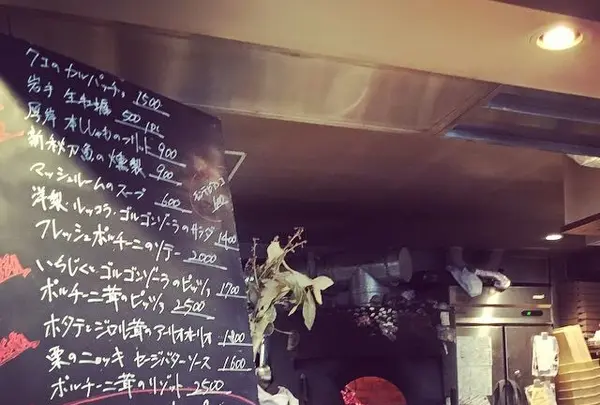 クエのカルパッチョ 1500
岩手 生牡蠣 500 1pc
厚岸 本ししゃものフリット 900
新秋刀魚の燻製 900
マッシュルームのスープ 600
洋梨・ルッコラ・ゴルゴンゾーラのサラダ 1400
フレッシュポルチーニのソテー 2000
いちじくとゴルゴンゾーラのピッツァ 1700
ポルチーニ茸のピッツァ 2500
ホタテとジロル茸のアーリオオーリオ
栗のニョッキ セージバターソース 1600
ポルチーニ茸のリゾット 2500